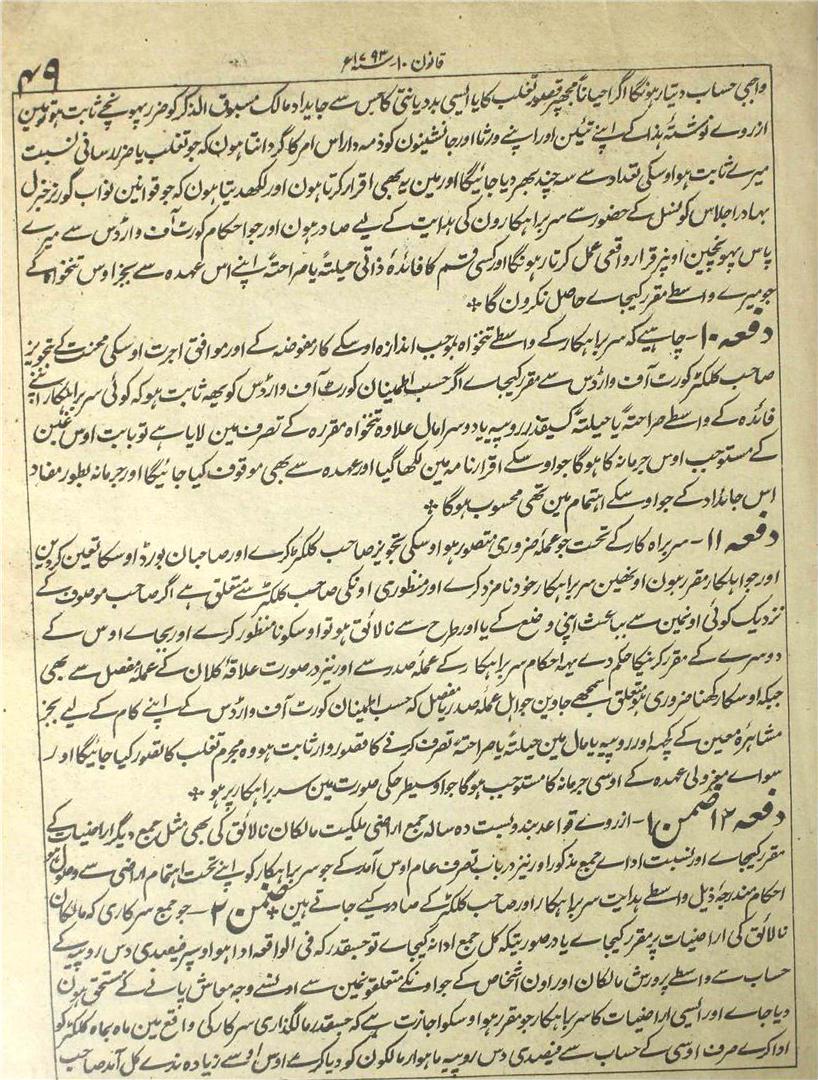 ۴۹
قانون ۱۰ سنہ ۱۷۹۳ء
واجبی حساب دیتار ہونگا اگر احیاناً مجھپر قصور تغلب کا یا ایسی بددیانتی کا جس سے جایداد مالک مسبوق الذکر کو ضرر پہونچے ثابت ہو تو مین
ازروے نوشتۂ ہذا کے اپنے تئین اور اپنے ورثا اور جانشینون کو ذمہ دار اس امر کا گردانتا ہون کہ جو تغلب یا ضرر رسانی نسبت
میرے ثابت ہو اوسکی تعداد سے سہ چند بھر دیا جائیگا اور مین یہ بھی اقرار کرتا ہون اور لکھدیتا ہون کہ جو قوانین نواب گورنر جنرل
بہادر اجلاس کونسل کے حضور سے سربراہکارون کی ہدایت کے لیے صادر ہون اور جو احکام کورٹ آف وارڈس سے میرے
پاس پہونچین اونپر قرار واقعی عمل کرتا رہونگا اور کسی قسم کا فائدۂ ذاتی حیلتہً یا صراحتہً اپنے اس عہدہ سے بجز اوس تنخواہ کے
جو میرے واسطے مقرر کیجاے حاصل نکرون گا ❊
دفعہ ۱۰ - چاہیے کہ سربراہکار کے واسطے تنخواہ بموجب اندازہ اوسکے کار مفوضہ کے اور موافق اجرت اوسکی محنت کے بتجویز
صاحب کلکٹر کورٹ آف وارڈس سے مقرر کیجاے اگر حسب اطمینان کورٹ آف وارڈس کو یہہ ثابت ہو کہ کوئی سربراہکار اپنے
فائدہ کے واسطے صراحتہً یا حیلتہً کسیقدر روپیہ یا دوسرا مال علاوہ تنخواہ مقررہ کے تصرف مین لایا ہے تو بابت اوس غبن
کے مستوجب اوس جرمانہ کا ہوگا جو اوسکے اقرارنامہ مین لکھا گیا اور عہدہ سے بھی موقوف کیا جائیگا اور جرمانہ بطور مفاد
اس جائداد کے جو اوسکے اہتمام مین تھی محسوب ہوگا ❊
دفعہ ۱۱ - سربراہ کار کے تحت جو عملہ ضروری متصور ہو اوسکی تجویز صاحب کلکٹر کرے اور صاحبان بورڈ اوسکا تعین کردین
اور جو اہلکار مقرر ہون اونھین سربراہکار خود نامزد کرے اور منظوری اونکی صاحب کلکٹر سے متعلق ہے اگر صاحب موصوف کے
نزدیک کوئی اونمین سے بباعث اپنی وضع کے یا اور طرح سے نالائق ہو تو اوسکو نامنظور کرے اور بجاے اوس کے
دوسرے کے مقرر کرنیکا حکم دے یہہ احکام سربراہکار کے عملۂ صدر سے اور نیز درصورت علاقۂ کلان کے عملۂ مفصل سے بھی
جبکہ اوسکا رکھنا ضروری ہو متعلق سمجھے جاوین جو اہل عملۂ صدر یا مفصل کہ حسب اطمینان کورٹ آف وارڈس کے اپنے کام کے لیے بجز
مشاہرۂ معین کے کچہہ اور روپیہ یا مال مین حیلتہً یا صراحتہً تصرف کرنے کا قصوروار ثابت ہو وہ مجرم تغلب کا تصور کیا جائیگا اور
سواے معزولی عہدہ کے اوسی جرمانہ کا مستوجب ہوگا جو اوسیطرحکی صورت مین سربراہکار پر ہو ❊
دفعہ ۱۲ ضمن ۱ - ازروے قواعد بندوبست دہ سالہ جمع اراضی ملکیت مالکان نالائق کی بھی مثل جمع دیگر اراضیات کے
مقرر کیجاے اور نسبت اداے جمع مذکور اور نیز درباب تصرف عام اوس آمد کے جو سربراہکار کو اپنے تحت اہتمام اراضی سے وصول ہو
احکام مندرجہ ذیل واسطے ہدایت سربراہکار اور صاحب کلکٹر کے صادر کیے جاتے ہین ❊ ضمن ۲ - جو جمع سرکاری کہ مالکان
نالائق کی اراضیات پر مقرر کیجاے یا درصورتیکہ کل جمع ادا نہ کیجاے تو جسقدر کہ فی الواقعہ ادا ہو اوسپر فیصدی دس روپیہ کے
حساب سے واسطے پرورش مالکان اور اون اشخاص کے جو اونکے متعلقونمین سے اونسے وجہ معاش پانے کے مستحق ہون
دیا جاے اور ایسی اراضیات کا سربراہکار جو مقرر ہو اوسکو اجازت ہے کہ جسقدر مالگذاری سرکار کی واقع مین ماہ بماہ کلکٹر کو
ادا کرے صرف اوسی کے حساب سے فیصدی دس روپیہ ماہوار مالکون کو دیا کرے اوس سے زیادہ ندے کل آمد صاحب